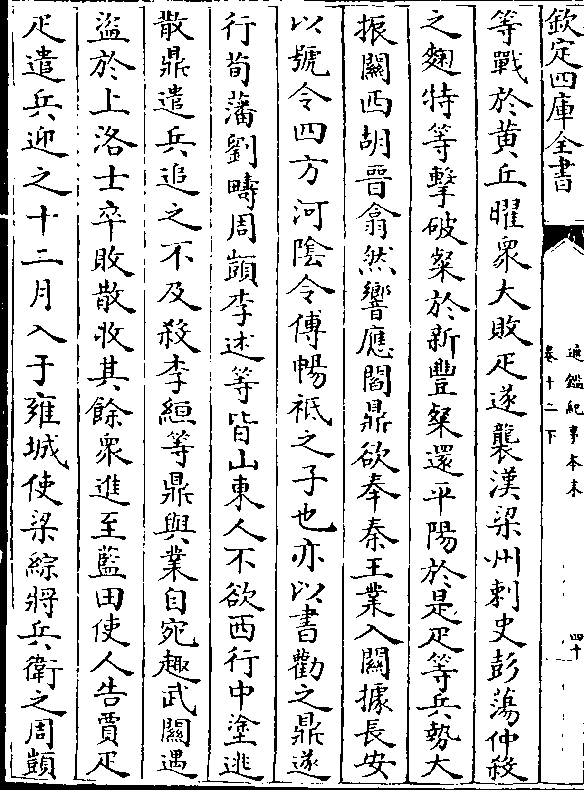 欽定四庫全書
通鑑紀事本末
卷十二下
四十
等戰於黄丘曜衆大敗疋遂襲漢梁州刺史彭蕩仲殺
之麴特等擊破粲於新豐粲還平陽於是疋等兵勢大
振關西胡晉翕然響應閻鼎欲奉秦王業入關據長安
以號令四方河陰令傅暢祗之子也亦以書勸之鼎遂
行荀藩劉疇周顗李述等皆山東人不欲西行中塗逃
散鼎遣兵追之不及殺李絙等鼎與業自宛趣武關遇
盜於上洛士卒敗散收其餘衆進至藍田使人告賈疋
疋遣兵迎之十二月入于雍城使梁綜將兵衛之周顗